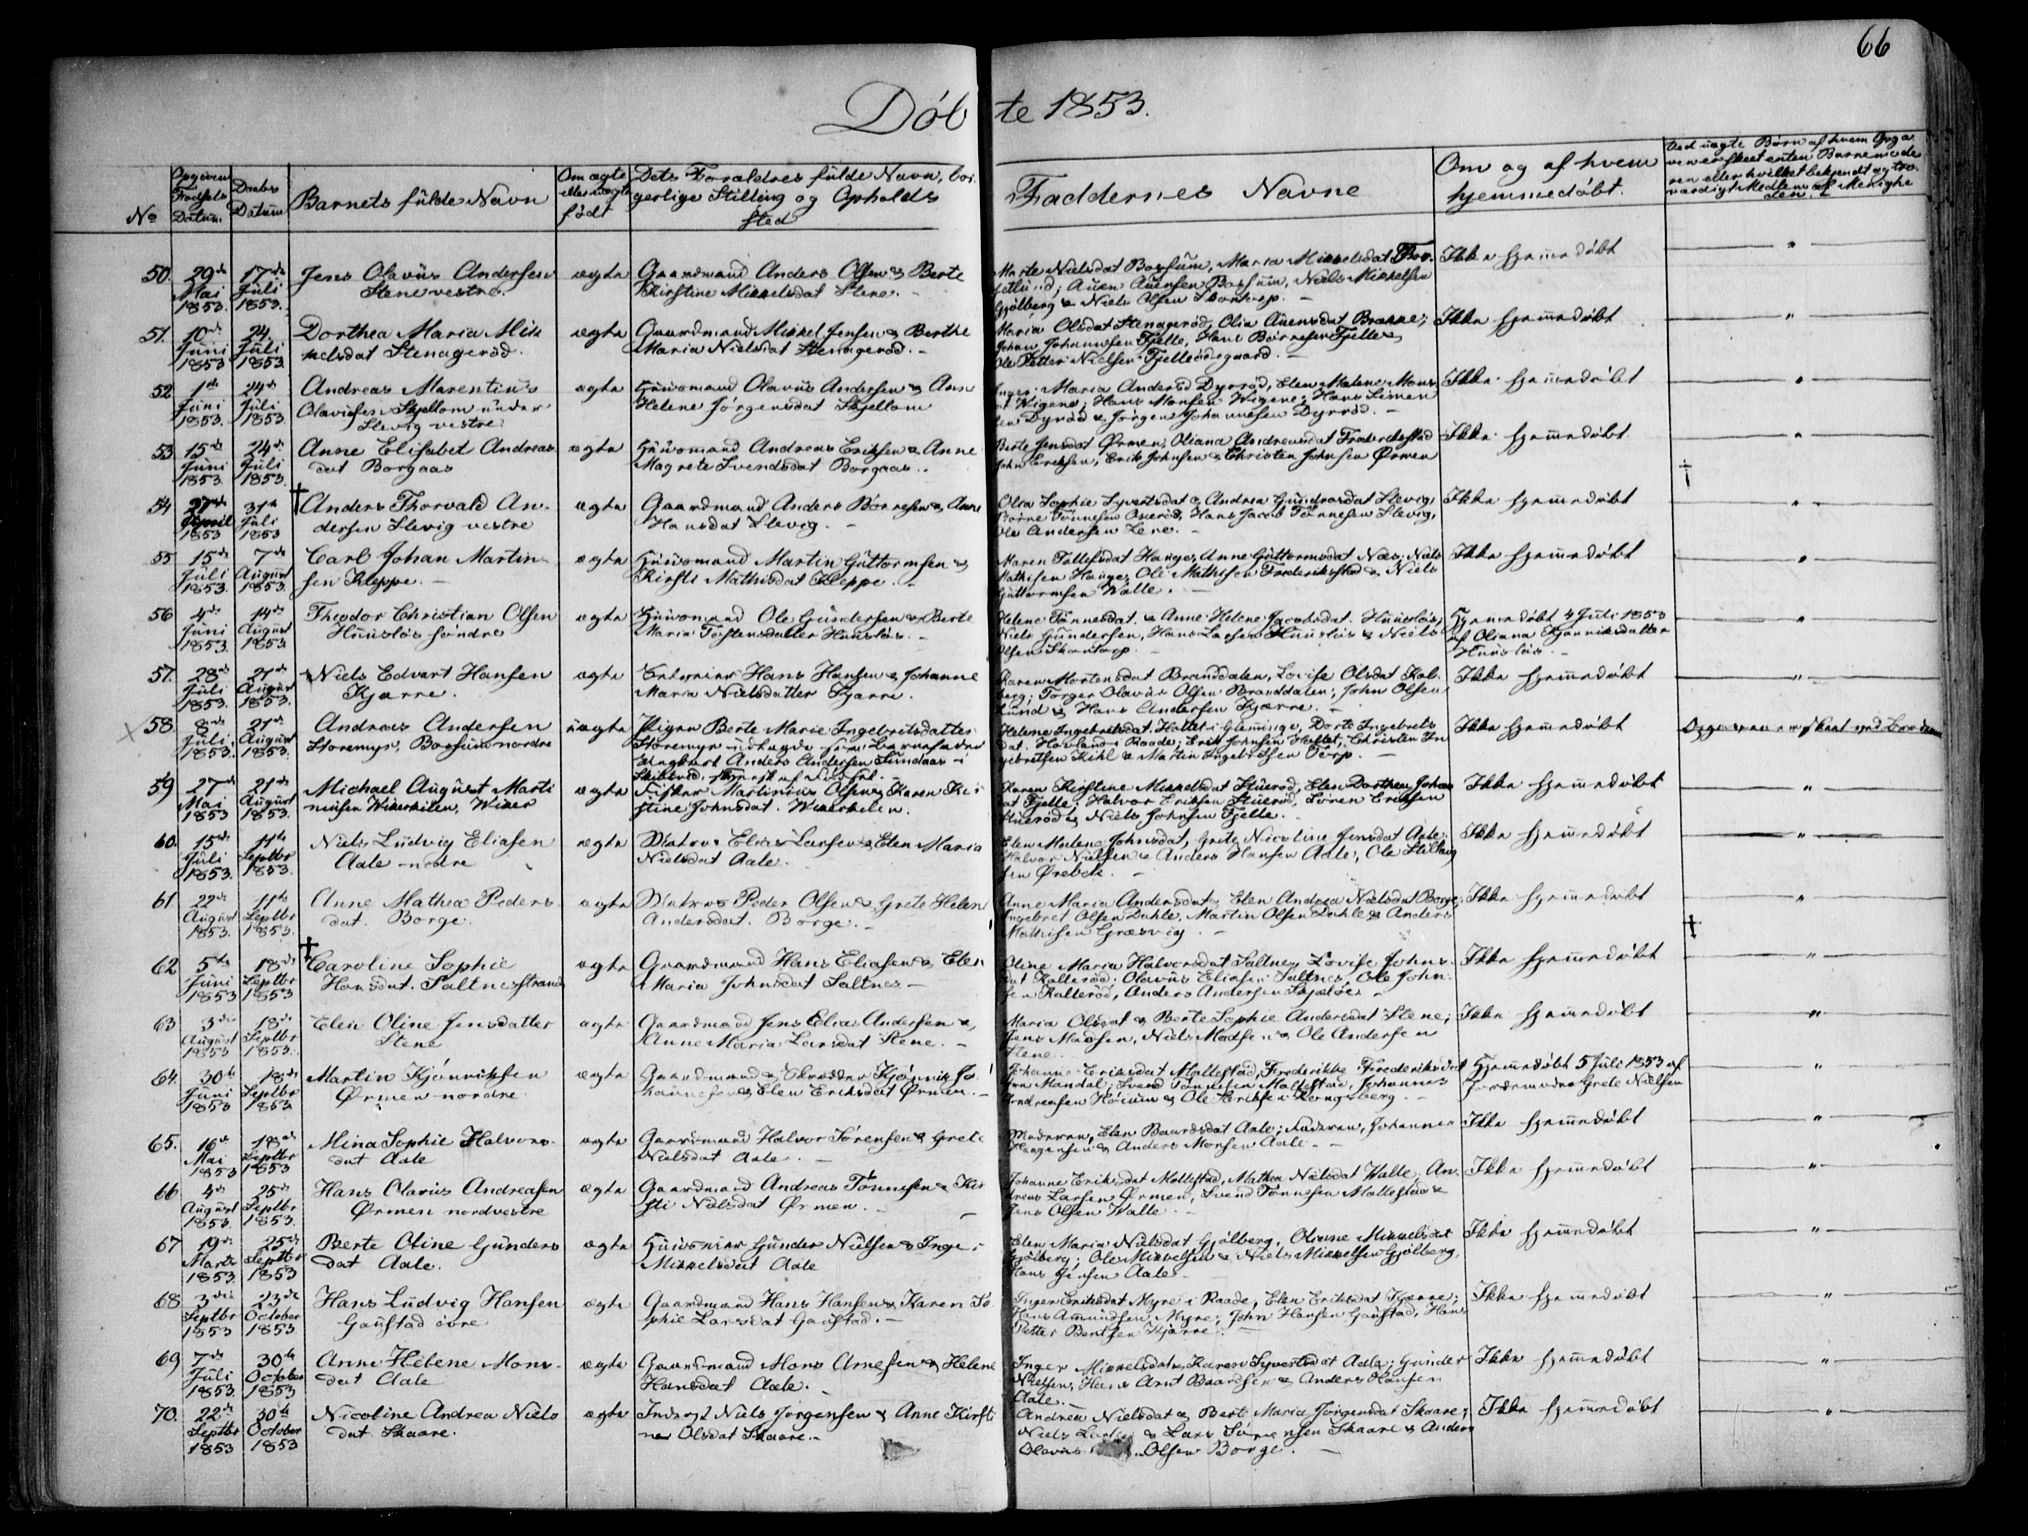 66
Döbte 1853.
No
Opgiven Fødsels Datum.
Daabs Datum
Barnets fulde Navn
Om ægte eller uægte født
Dets Forældres fulde Navn, borgerlige Stilling og Opholdssted
Faddernes Navne
Om og af hvem hjemmedøbt.
50. 29de Mai 1853. 17de Juli 1853. Jens Olavus Andersen
Stene vestre.
ægte Gaardmand Anders Olsen & Berte
Kirstine Mikkelsdat Stene.
Marte Nielsdat Bossum, Maria Mikkelsdat
Auen Auensen Bossum, Niels Mikkelsen
Gjølberg & Niels Olsen Skontorp.
Ikke hjemmedøbt
51. 10de Juni 1853 24. Juli 1853. Dorthea Maria Mik
kelsdat Stenagerød.
ægte Gaardmand Mikkel Jensen & Berthe
Maria Nielsdat Stenagerød.
Maria Olsdat Stenagerød, Olia Auensdat Brække;
Johan Johannesen Fjelle, Hans Børresen Fjelle &
Ole Petter Nielsen Fjelleødegaard.
Ikke hjemmedøbt
52. 1ste Juni 1853. 24de Juli 1853. Andreas Marentius
Olavisen Skjellom under
Slevig vestre
ægte Huusmand Olavus Andersen & Ann
Helene Jørgensdat Skjellom
Inger Maria Andersd Dyrrød, Elen Malene Mons
dat Wigene; Hans Monsen Wigene; Hans Simen
sen Dyrød & Jørgen Johannesen Dyrrød.
Ikke hjemmedøbt
53 15de Juni 1853. 24de Juli 1853. Anne Elisabet Andreas
dat Borgaas
ægte Huusmand Andreas Eriksen & Anne
Magrete Svendsdat Borgaas.
Berte Jensdat Ørmen, Oliana Andreasdat Frederikstad
John Eriksen, Erik Johnsen & Christen Johnsen Ørmen
Ikke hjemmedøbt
54 27de April 1853 31te Juli 1853 † Anders Thorvald An-
dersen Slevig vestre
ægte Gaardmand Anders Børresen & Anne
Hansdat Slevig.
Olea Sophie Syvertsdat & Andrea Gundrosdat Slevig,
Børre Tønnesen Oserød, Hans Jacob Tønnesen Slevig,
Ole Andersen Lene.
Ikke hjemmedøbt
†
55 15de Juli 1853. 7de August 1853. Carl Johan Martin-
sen Kleppe.
ægte Huusmand Martin Guttormsen &
Kirsti Mathisdat Kleppe.
Maren Tollefsdat Hauge, Anne Guttormsdat Næs, Niels
Mathisen Hauge, Ole Mathisen Frederikstad & Niels
Guttormsen Walle.
Ikke hjemmedøbt
56 4de Juni 1853. 14de August 1853. Theodor Christian Olsen
Huusløs søndre
ægte Huusmand Ole Gundersen & Berte
Maria Torstensdatter Huusløs.
Helene Tønnesdat. & Anne Helene Jacobsdat. Huusløs;
Niels Gundersen, Hans Larsen Huusløs & Niels
Olsen Skontorp.
Hjemmedøbt 4 Juli 1853
af Oliana Kjønniksdatter
Huusløs.
57. 28de Juli 1853. 21de August 1853. Niels Edvart Hansen
Kjærre.
ægte Hans Hansen & Johanne
Maria Nielsdatter Kjærre.
Karen Mortensdat Branddalen, Lovise Olsdat Kol
berg; Torger Olavus Olsen Branddalen; John Olsen
Lund & Hans Andersen Kjærre.
Ikke hjemmedøbt
58. 8de Juli 1853. 21de August 1853. Andreas Andersen
Storemyr, Bossum nordre
uægte Pigen Berte Marie Ingebretsdatter
Storemyr udlagde som Barnefader
Ungkarl Anders Andersen Sundaas i
Skibtved.
Helene Ingebretsdat. Hattet i Glemmige, Dorte Ingebrets
dat. Hovland i Raade; Erik Johnsen Hattet, Christen In
gebretsen Kihl & Martin Ingebretsen Torp.
Ikke hjemmedøbt
Opgaven er skeet ved
59 27de Mai 1853 21de August 1853 Michael August Marti
niusen Wikerkilen, Wiker
ægte Fisker Martinius Olsen & Karen Kir
stine Johnsdat. Wikerkilen.
Karen Kirstine Mikkelsdat Stuerød, Elen Dorthea Johns
dat Fjelle, Halvor Eriksen Stuerød, Søren Eriksen
Stuerød & Niels Johnsen Fjelle.
Ikke hjemmedøbt
60. 15de Juli 1853. 11te Septbr 1853. Niels Ludvig Eliasen
Aale nedre
ægte Matros Elias Larsen & Elen Maria
Nielsdat Aale.
Elen Malene Johnsdat, Grete Nicoline Jensdat Aale;
Halvor Nielsen & Anders Hansen Aale; Ole
sen Ørebek.
Ikke hjemmedøbt
61 22de August 1853. 11te Septbr 1853. Anne Mathea Peders
dat. Borge.
ægte Matros Peder Olsen & Grete Helene
Andersdat. Borge.
Anne Maria Andersdat & Elen Andrea Nielsdat Borge;
Ingebret Olsen Dahle, Martin Olsen Dahle & Anders
Mathisen Græsvig.
Ikke hjemmedøbt
†
62 5te Juni 1853 18de Septbr 1853 † Caroline Sophie
Hansdat. Saltnesstrand
ægte Gaardmand Hans Eliasen & Elen
Maria Johnsdat Saltnes
Oline Maria Halvorsdat Saltnes, Lovise Johns
dat Kallerød, Olavus Eliasen Saltnes, Ole John
sen Kallerød, Anders Andersen Skjæløe.
Ikke hjemmedøbt
63 3die August 1853 18de Septbr 1853. Elen Oline Jensdatter
Stene
ægte Gaardmand Jens Elias Andersen &
Anne Maria Larsdat Stene.
Maria Olsdat & Berte Sophie Andersdat Stene;
Jens Madsen, Niels Madsen & Ole Andersen
Stene.
Ikke hjemmedøbt
64. 30te Juni 1853 18de Septbr 1853 Martin Kjønniksen
Ørmen nordre
ægte Gaardmand & Skrædder Kjønnik Jo
hannesen & Elen Eriksdat Ørmen.
Johanne Eriksdat Mollestad, Frederikke Frederiksdat
fra Mandal; Svend Tønnesen Mollestad, Johannes
Andreasen Høium & Ole Eriksen Kongsberg.
Hjemmedøbt 5 Juli 1853 af
Jordemoder Grete Nielsen
65. 16de Mai 1853 18de Septbr 1853 Mina Sophie Halvors-
dat Aale
ægte Gaardmand Halvor Sørensen & Grete
Nielsdat Aale.
Moderen, Elen Baardsdat Aale; Faderen, Johannes
Haagensen & Anders Monsen Aale.
Ikke hjemmedøbt
66 4de August 1853. 25de Septbr 1853. Hans Olavus Andreasen
Ørmen nordvestre
ægte Gaardmand Andreas Tønnesen & Kir
sti Nielsdat Ørmen.
Johanne Eriksdat Mollestad, Mathea Nielsdat Walle; An-
dreas Larsen Ørmen, Svend Tønnesen Mollestad &
Jens Olsen Walle.
Ikke hjemmedøbt
67 19de Marts 1853. 25de Septbr 1853 Berte Oline Gunders
dat Aale.
ægte Gunder Nielsen & Inger
Mikkelsdat Aale
Elen Maria Nielsdat Gjølberg, Olianne Mikkelsdat
Gjølberg; Ole Mikkelsen & Niels Mikkelsen Gjølberg,
Hans Jensen Aale.
Ikke hjemmedøbt
68 3die Septbr 1853 23de October 1853 Hans Ludvig Hansen
Gaustad övre
ægte Gaardmand Hans Hansen & Karen So
phie Larsdat Gaustad.
Inger Eriksdat Myre i Raade, Elen Eriksdat Kjærre;
Hans Amundsen Myre; John Hansen Gaustad, Hans
Petter Bentsen Kjærre.
Ikke hjemmedøbt
69 7de Juli 1853. 30te October 1853 Anne Helene Mons-
dat Aale
ægte Gaardmand Mons Arnesen & Helene
Hansdat Aale.
Inger Mikkelsdat & Karen Syvertsdat Aale; Gunder
Nielsen, Hans Arnt Baardsen & Anders Hansen
Aale.
Ikke hjemmedøbt
70. 22de Septbr 1853 30te October 1853 Nicoline Andrea Niels
dat Skaare.
ægte Inderst Niels Jørgensen & Anne Kirsti
ne Olsdat Skaare.
Andrea Nielsdat & Berte Maria Jørgensdat Skaare;
Niels & Lars Sørensen Skaare & Anders
Olavus Olsen Borge.
Ikke hjemmedøbt